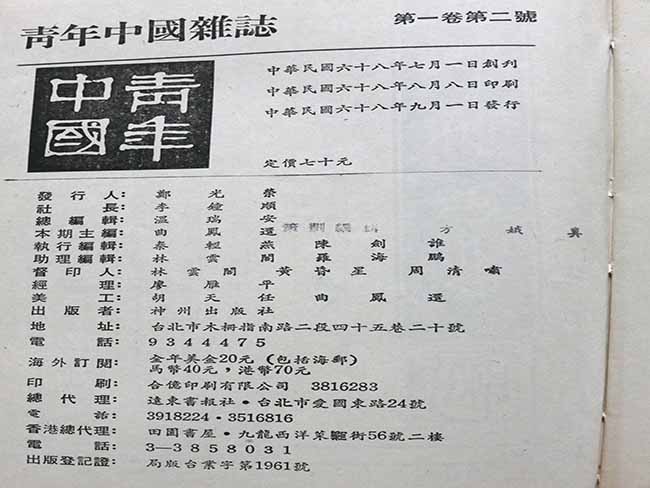 青年中國雜誌
第一卷第二號
青年
中國
中華民國六十八年七月一日創刊
中華民國六十八年八月八日印刷
中華民國六十八年九月一日發行
定價七十元
發行人：鄭光榮
社長：李鐘順
總編輯：溫瑞安
本期主編：曲鳳還 方娥真
執行編輯：秦輕燕 陳劍誰
助理編輯：林雲閣 羅海鵬
督印人：林雲閣 黃昏星 周清嘯
經理：廖雁平
美工：胡天任 曲鳳還
出版者：神州出版社
地址：台北市木柵指南路二段四十五巷二十號
電話：9344475
海外訂閱：全年美金20元（包括海郵）
馬幣40元，港幣70元
印刷：合億印刷有限公司 3816283
總代理：遠東書報社·台北市愛國東路24號
電話：3918224·3516816
香港總代理：田園書屋·九龍西洋菜街56號二樓
電話：3—3858031
出版登記證：局版台業字第1961號